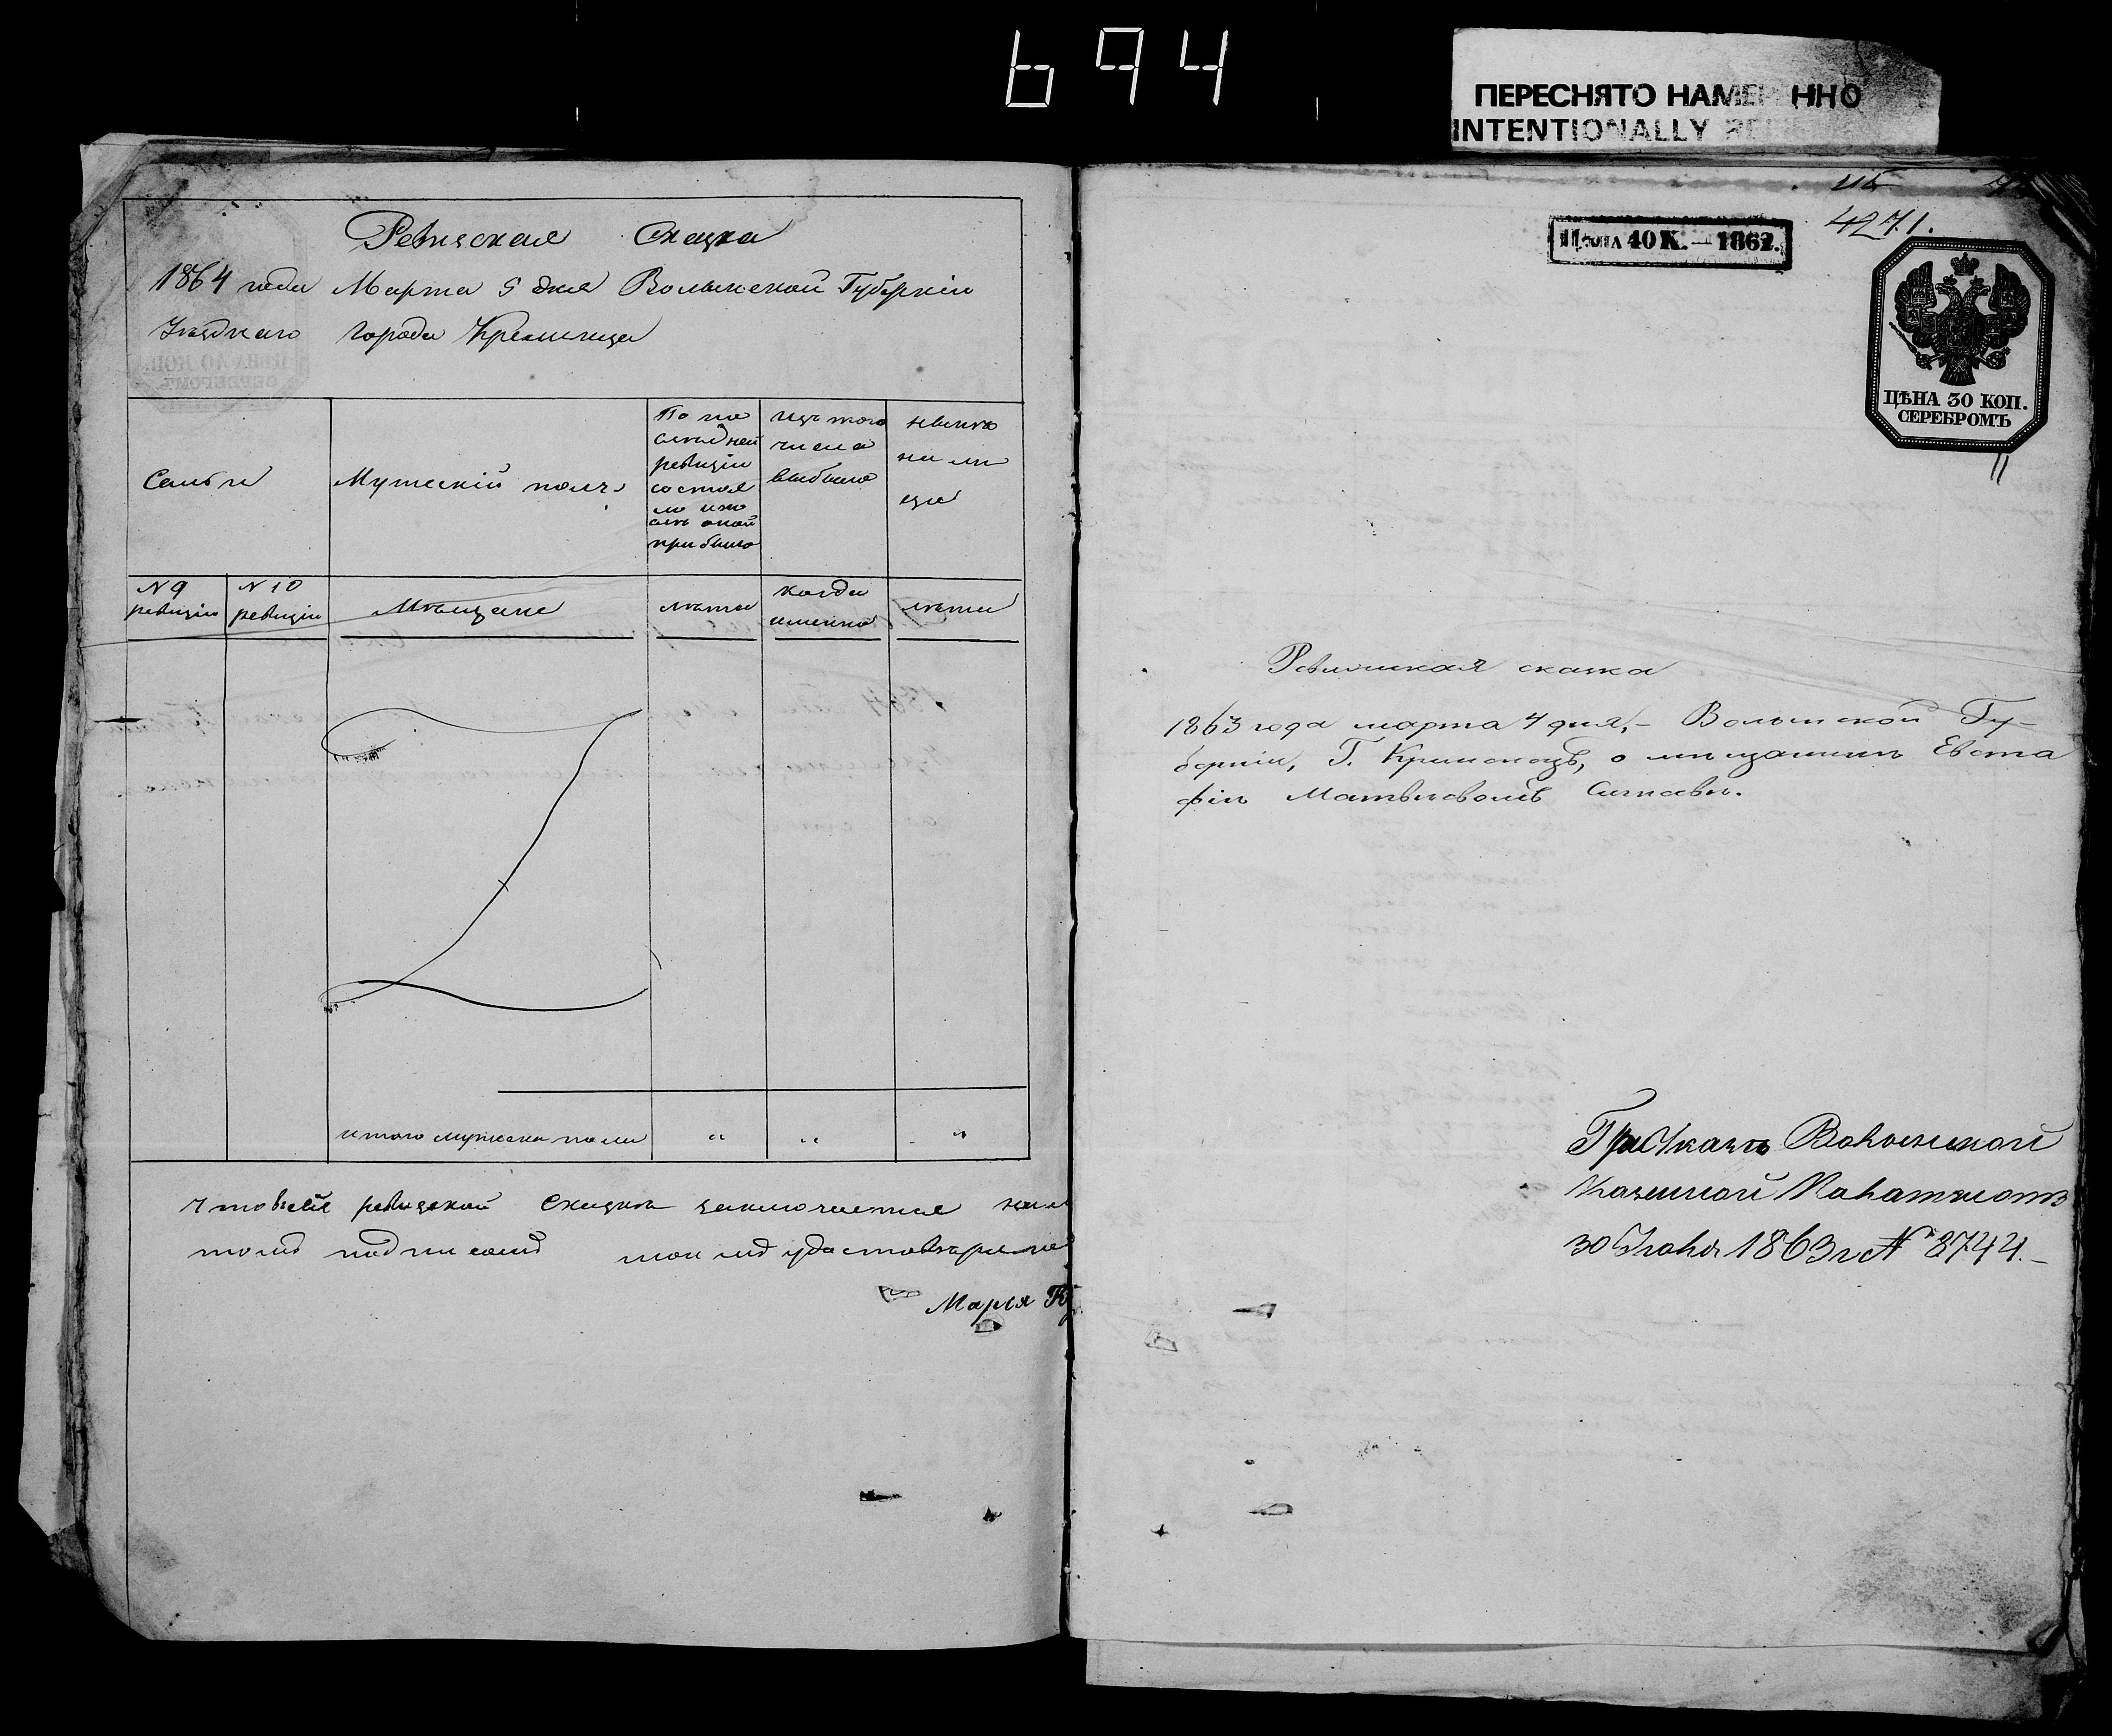 694
ПЕРЕСНЯТО НАМЕР ННО
INTENTIONALLY RE
Ревизская Сказка
1864 года Марта 5 дня Волынской Губерніи
Уѣзднаго города Кременца
Семьи
Мужескій полъ
По по
слѣдней
ревизіи
состоя
ло и по
слѣ оной
прибыло
Изъ того
числа
выбыло
нынѣ
на ли
цо
N 9
ревизіи
N 10
ревизіи
Мѣщане
лѣта
когда
именно
лѣта
итого мужеска пола
"
"
"
Что въ сей ревизской сказкѣ заключается
томъ подписомъ моимъ удостовѣряю
Марья
115
4271.
Цѣна 40 К. — 1862.
ЦѢНА 30 КОП.
СЕРЕБРОМЪ
Ревизская сказка
1863 года марта 4 дня, – Волынской Гу-
берніи, Г. Кременецъ, о мѣщанинѣ Евста
фіѣ Матвѣевомъ
При Указѣ Волынской
Казенной Палаты отъ
30 Іюля 1863 г № 8744.–